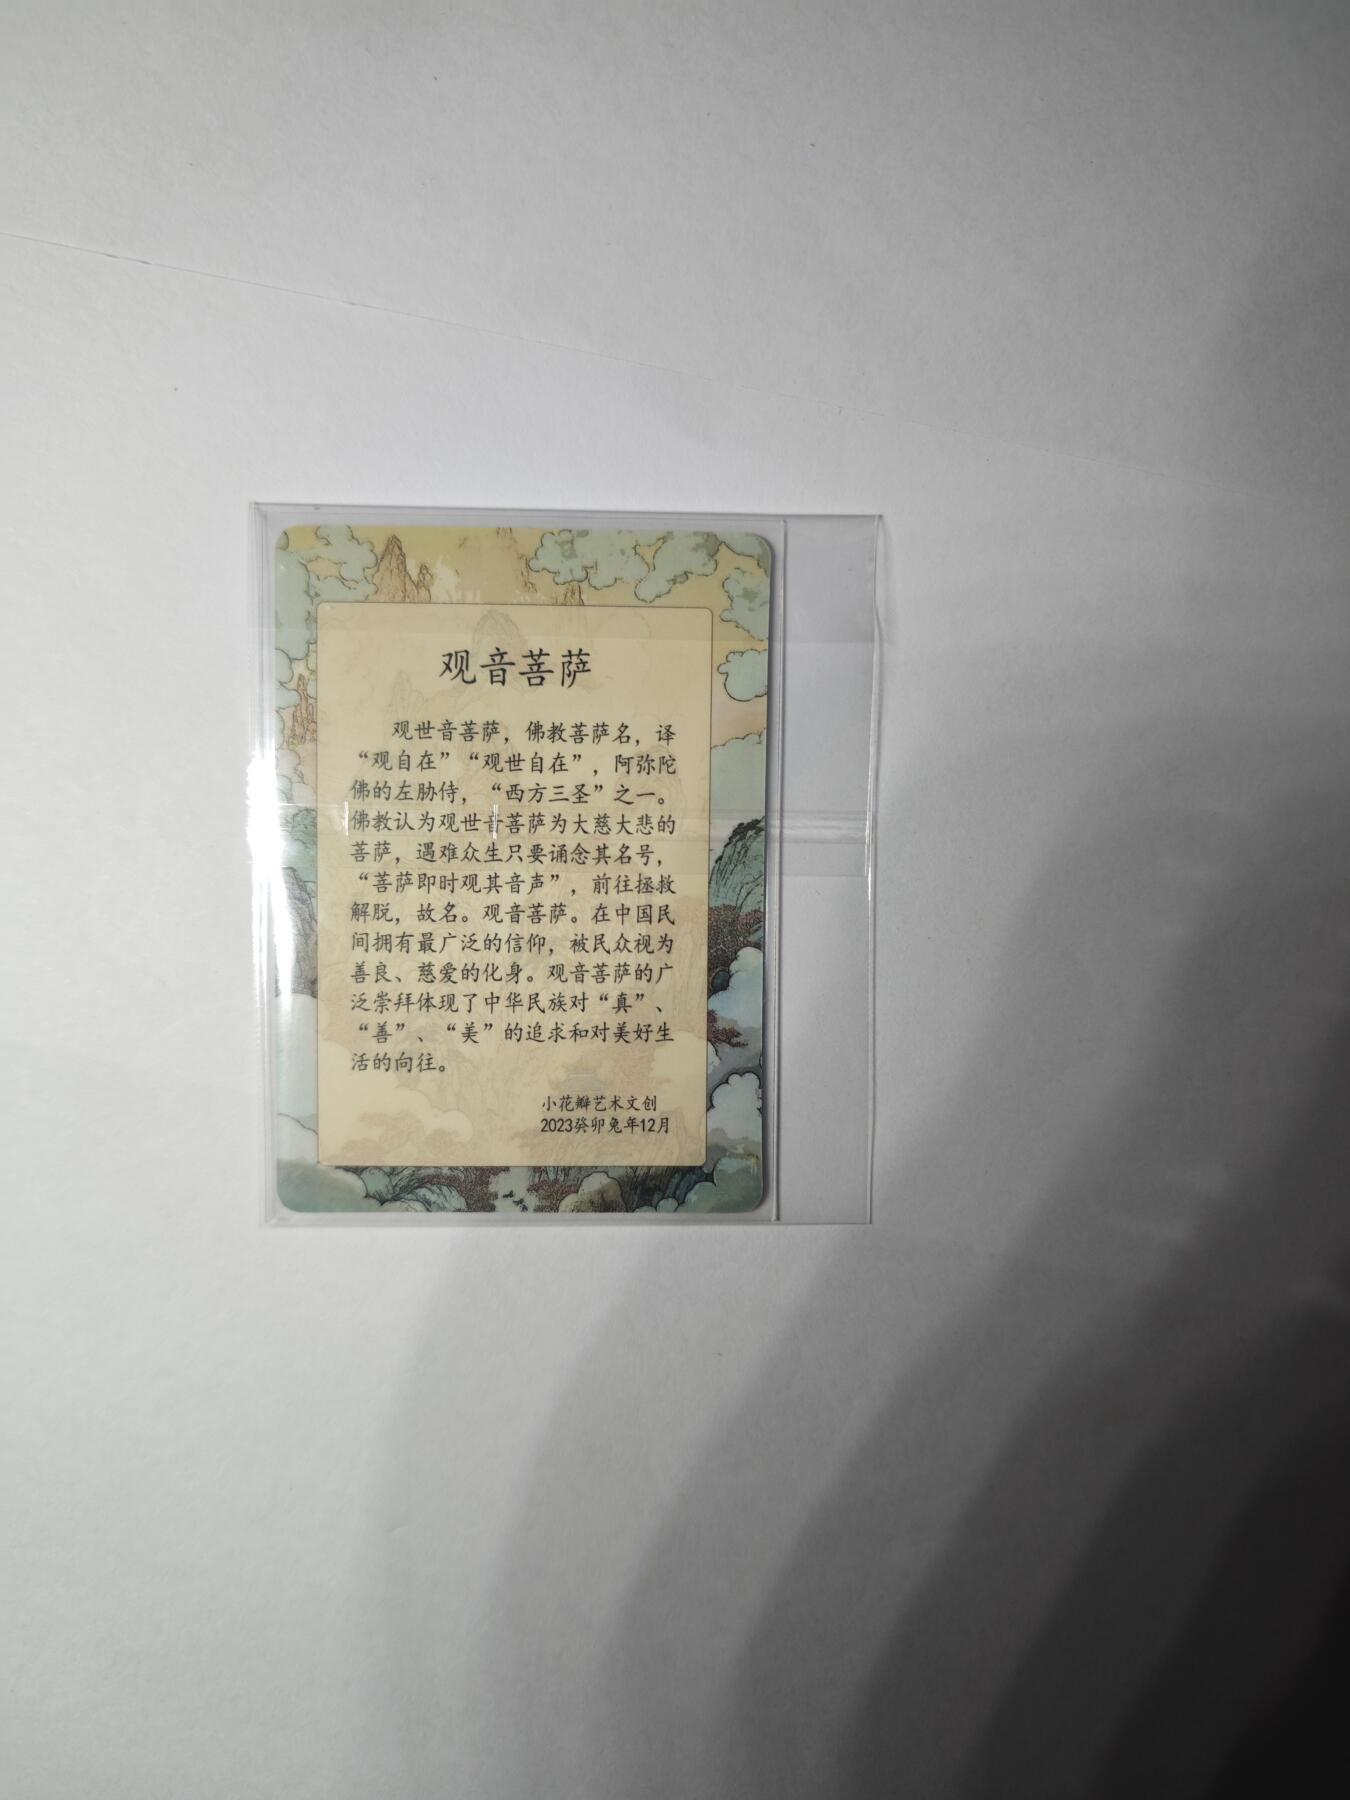 观音菩萨
观世音菩萨，佛教菩萨名，译
“观自在”“观世自在”，阿弥陀
佛的左胁侍，“西方三圣”之一。
佛教认为观世音菩萨为大慈大悲的
菩萨，遇难众生只要诵念其名号，
“菩萨即时观其音声”，前往拯救
解脱，故名。观音菩萨。在中国民
间拥有最广泛的信仰，被民众视为
善良、慈爱的化身。观音菩萨的广
泛崇拜体现了中华民族对“真”、
“善”、“美”的追求和对美好生
活的向往。
小花瓣艺术文创
2023癸卯兔年12月